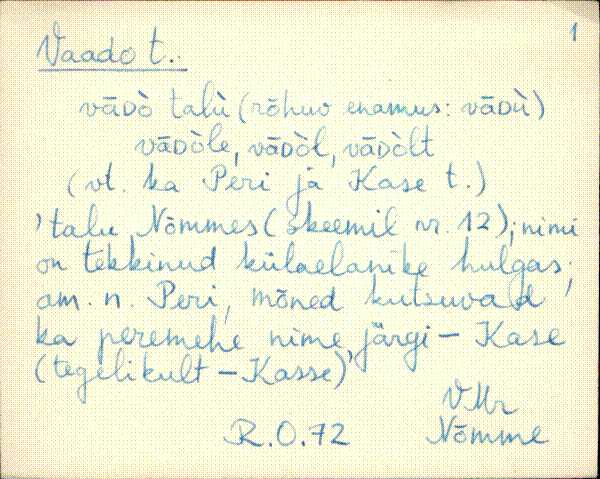 1
Vaado t.
vāᴅò talù (rõhuv enamus: vāᴅù)
vāᴅòle, vāᴅòl, vāᴅòlt
(vt. ka Peri ja Kase t.)
'talu Nõmmes (skeemil nr. 12); nimi
on tekkinud külaelanike hulgas;
am. n. Peri, mõned kutsuvad
ka peremehe nime järgi – Kase
(tegelikult – Kasse)'
VMr
R.O.72 Nõmme